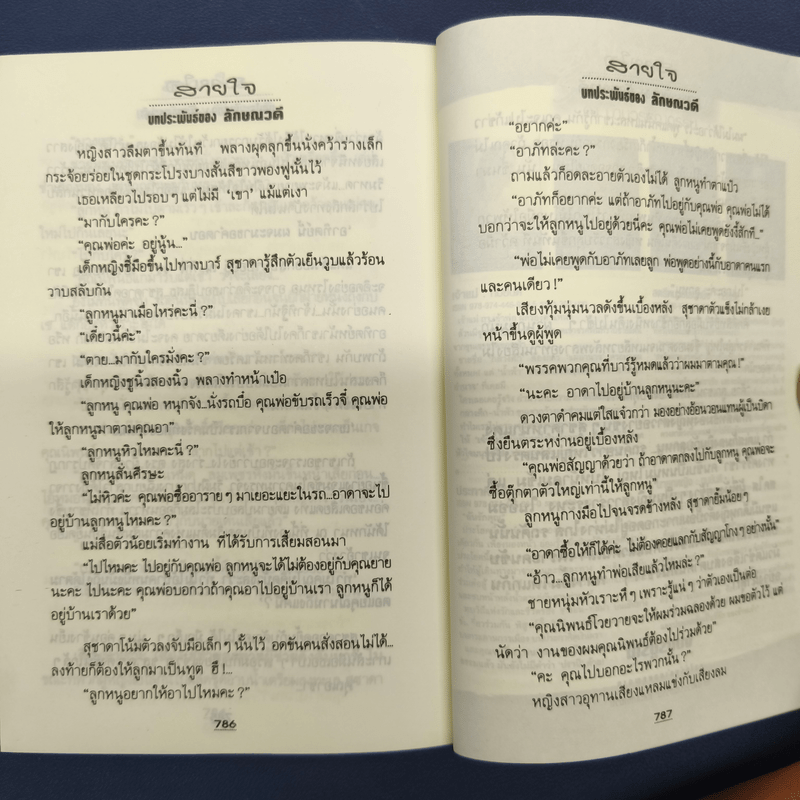 สายใจ
บทประพันธ์ของ ลักษณวดี
หญิงสาวลืมตาขึ้นทันที พลางผุดลุกขึ้นนั่งคว้าร่างเล็ก
กระจ้อยร่อยในชุดกระโปรงบางสั้นสีขาวพองฟูนั้นไว้
เธอเหลียวไปรอบๆ แต่ไม่มี ‘เขา’ แม้แต่เงา
“มากับใครคะ?”
“คุณพ่อค่ะ อยู่นู้น...”
เด็กหญิงชี้มือขึ้นไปทางบาร์ สุชาดารู้สึกตัวเย็นวูบแล้วร้อน
วาบสลับกัน
“ลูกหนูมาเมื่อไหร่คะนี่?”
“เดี๋ยวนี้ค่ะ”
“ตาย...มากับใครมั่งคะ?”
เด็กหญิงชูนิ้วสองนิ้ว พลางทำหน้าเป๋อ
“ลูกหนู คุณพ่อ หนุกจัง...นั่งรถบื่อ คุณพ่อขับรถเร็วจี๋ คุณพ่อ
ให้ลูกหนูมาตามคุณอา”
“ลูกหนูหิวไหมคะนี่?”
ลูกหนูสั่นศีรษะ
“ไม่หิวค่ะ คุณพ่อซื้ออารายๆ มาเยอะแยะในรถ...อาดาจะไป
อยู่บ้านลูกหนูไหมคะ?”
แม่สื่อตัวน้อยเริ่มทำงาน ที่ได้รับการเสี้ยมสอนมา
“ไปไหมคะ ไปอยู่กับคุณพ่อ ลูกหนูจะได้ไม่ต้องอยู่กับคุณยาย
นะคะ ไปนะคะ คุณพ่อบอกว่าถ้าคุณอาไปอยู่บ้านเรา ลูกหนูก็ได้
อยู่บ้านเราด้วย”
สุชาดาโน้มตัวลงจับมือเล็กๆ นั้นไว้ อดขันคนสั่งสอนไม่ได้...
ลงท้ายก็ต้องให้ลูกมาเป็นทูต ฮึ!...
“ลูกหนูอยากให้อาไปไหมคะ?”
786
สายใจ
บทประพันธ์ของ ลักษณวดี
“อยากค่ะ”
“อาภัทล่ะคะ?”
ถามแล้วก็อดละอายตัวเองไม่ได้ ลูกหนูทำตาแป๋ว
“อาภัทก็อยากค่ะ แต่ถ้าอาภัทไปอยู่กับคุณพ่อ คุณพ่อไม่ได้
บอกว่าจะให้ลูกหนูไปอยู่ด้วยนี่คะ คุณพ่อไม่เคยพูดยังงี้สักที...”
“พ่อไม่เคยพูดกับอาภัทเลยลูก พ่อพูดอย่างนี้กับอาดาคนแรก
และคนเดียว!”
เสียงทุ้มนุ่มนวลดังขึ้นเบื้องหลัง สุชาดาตัวแข็งไม่กล้าเงย
หน้าขึ้นดูผู้พูด
“พรรคพวกคุณที่บาร์รู้หมดแล้วว่าผมมาตามคุณ!”
“นะคะ อาดาไปอยู่บ้านลูกหนูนะคะ”
ดวงตาดำคมแต่ใสแจ๋วกว่า มองอย่างอ้อนวอนแทนผู้เป็นบิดา
ซึ่งยืนตระหง่านอยู่เบื้องหลัง
“คุณพ่อสัญญาด้วยว่า ถ้าอาดาตกลงไปกับลูกหนู คุณพ่อจะ
ซื้อตุ๊กตาตัวใหญ่เท่านี้ให้ลูกหนู”
ลูกหนูกางมือไปจนจรดข้างหลัง สุชาดายิ้มน้อยๆ
“อาดาซื้อให้ก็ได้ค่ะ ไม่ต้องคอยแลกกับสัญญาโกงๆ อย่างนั้น”
“อ้าว...ลูกหนูทำพ่อเสียแล้วไหมล่ะ?”
ชายหนุ่มหัวเราะหึๆ เพราะรู้แน่ๆ ว่าตัวเองเป็นต่อ
“คุณนิพนธ์โวยวายจะให้ผมร่วมฉลองด้วย ผมขอตัวไว้ แต่
นัดว่า งานของผมคุณนิพนธ์ต้องไปร่วมด้วย”
“คะ คุณไปบอกอะไรพวกนั้น?”
หญิงสาวอุทานเสียงแหลมแข่งกับเสียงลม
787